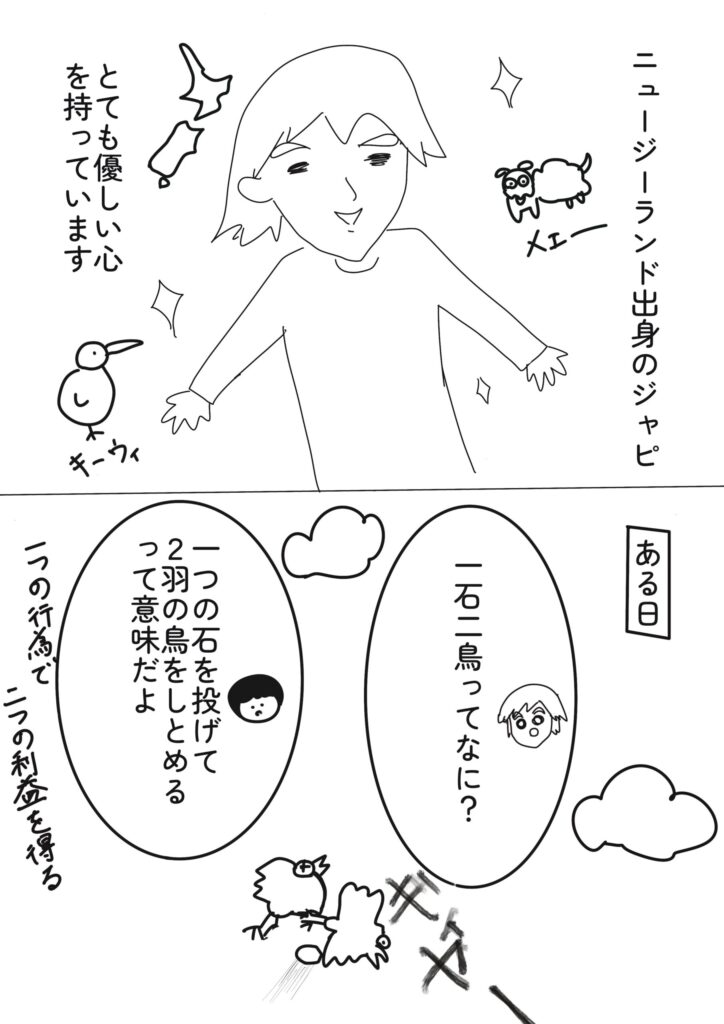 ニュージーランド出身のジャピ
メェー
とても優しい心
を持っています
キーウィ
ある日
一石二鳥ってなに?
一つの石を投げて
2羽の鳥をしとめる
って意味だよ
一つの行為で
二つの利益を得る